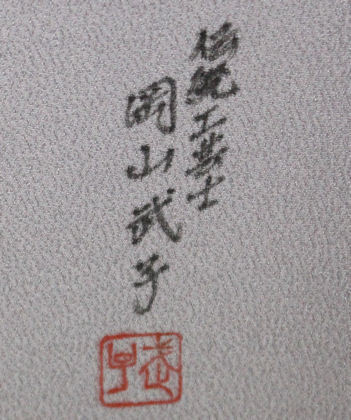 伝統工芸士
岡山武子
武子